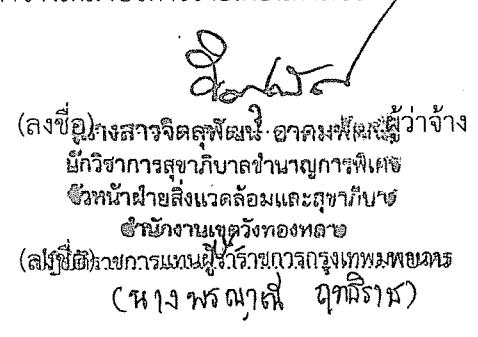 (ลงชื่อ)นางสาวจิตสุพัฒน์ อาคมพัฒน์ ผู้ว่าจ้าง
นักวิชาการสุขาภิบาลชำนาญการพิเศษ
หัวหน้าฝ่ายสิ่งแวดล้อมและสุขาภิบาล
สำนักงานเขตวังทองหลาง
(ลงชื่อ) ราชการแทนผู้ว่าราชการกรุงเทพมหานคร
(นาง พรณาณี ฤทธิราช)